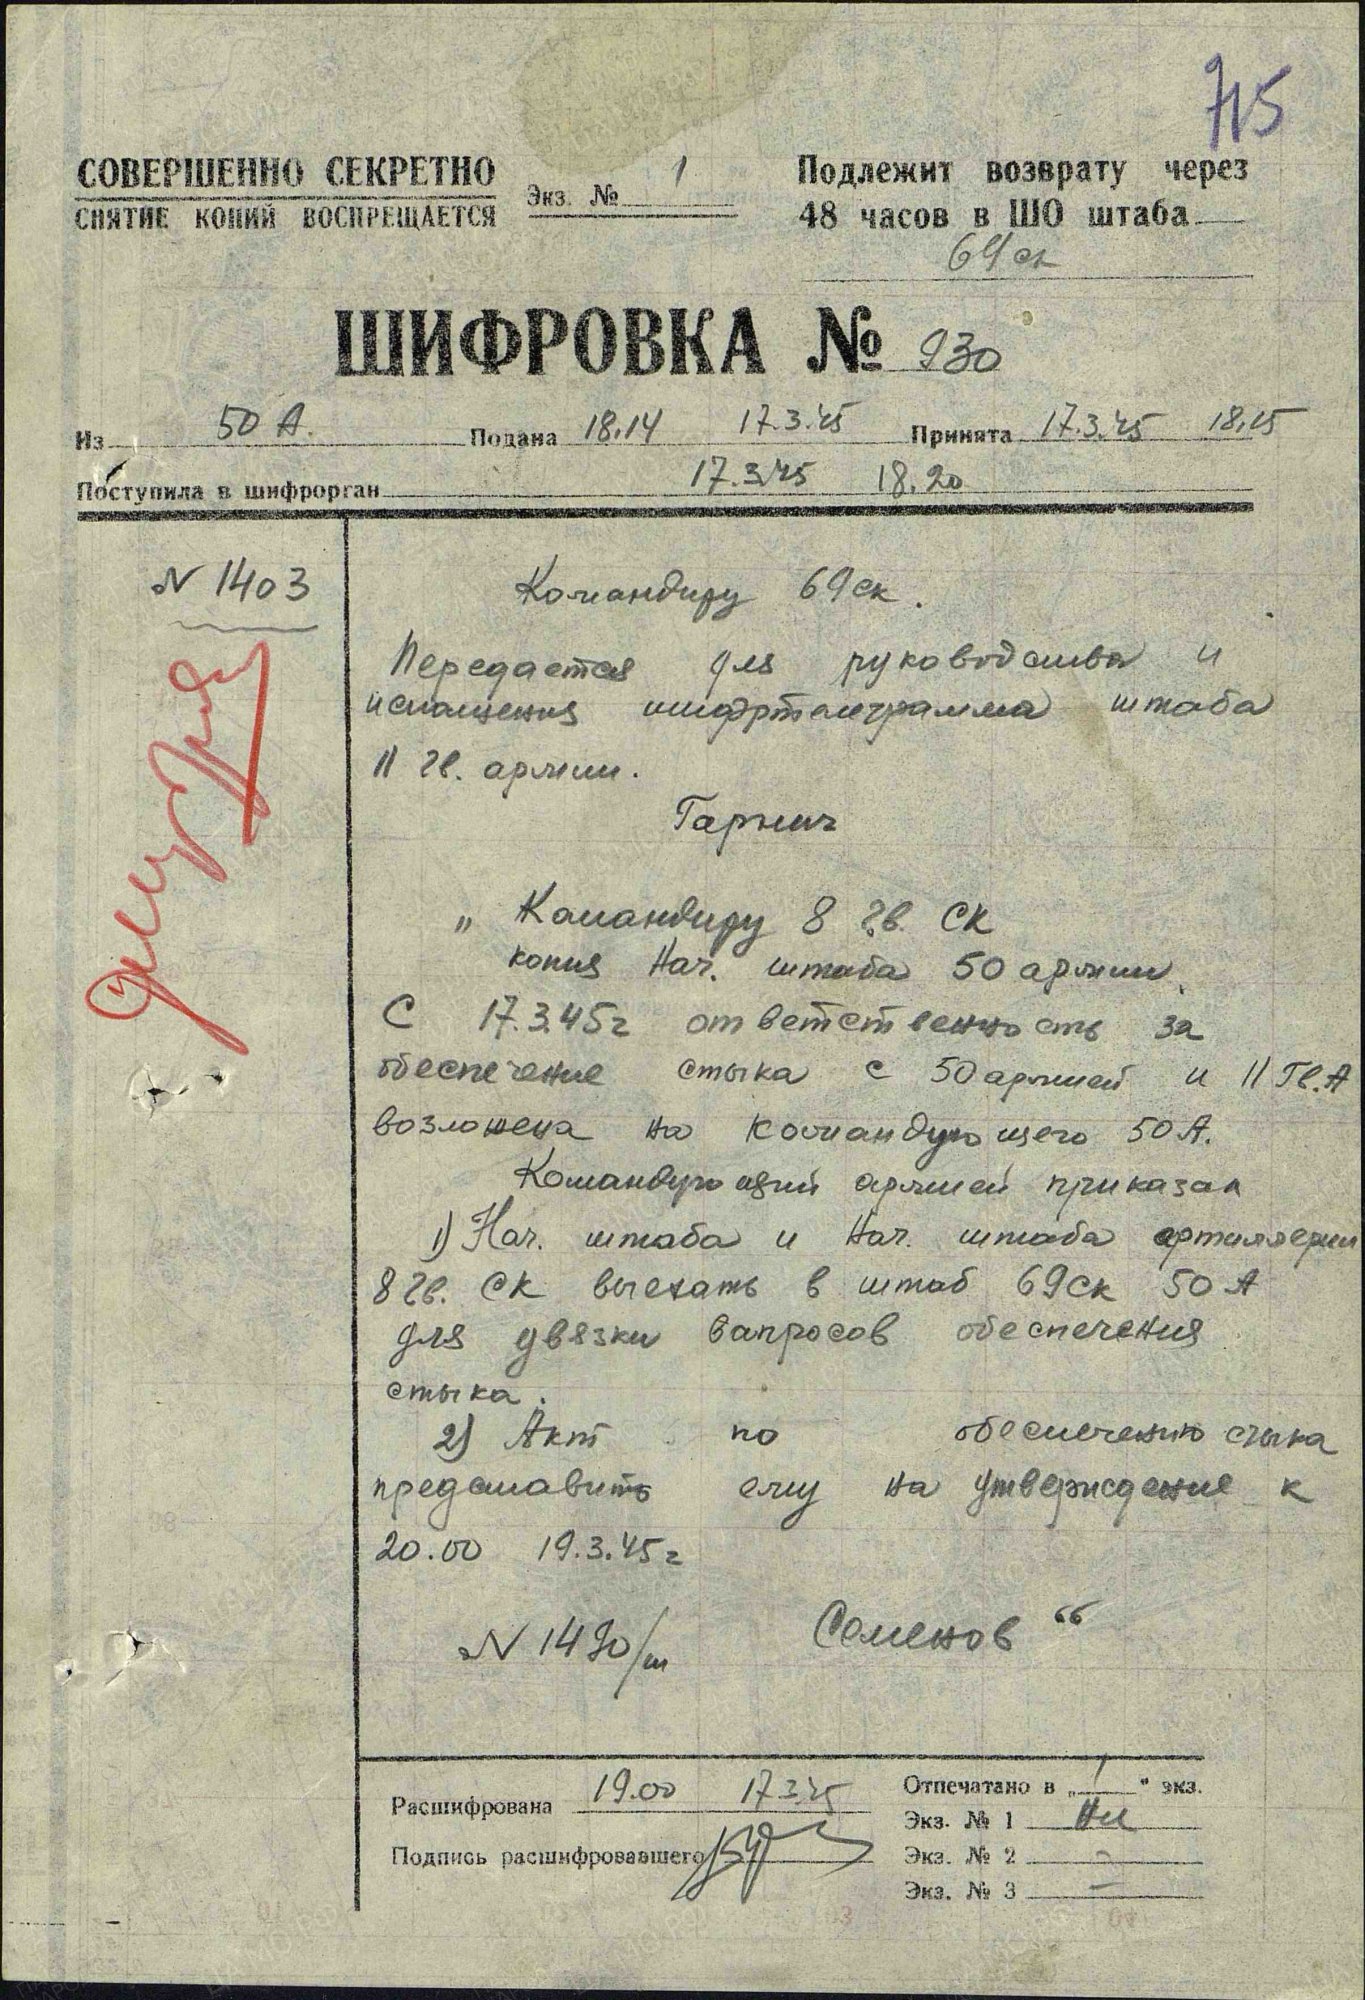 715
СОВЕРШЕННО СЕКРЕТНО
СНЯТИЕ КОПИЙ ВОСПРЕЩАЕТСЯ
Экз. № 1
Подлежит возврату через
48 часов в ШО штаба
69 ск
ШИФРОВКА № 930
Из 50 А. Подана 18.14 17.3.45 Принята 17.3.45 18.15
Поступила в шифрорган 17.3.45 18.20
N 1403
Командиру 69 ск.
Передается для руководства и
исполнения шифртелеграмма штаба
11 гв. армии.
Гарнич
„ Командиру 8 гв. СК
копия Нач. штаба 50 армии.
С 17.3.45 г ответственность за
обеспечение стыка с 50 армией и 11 Гв. А
возложена на командующего 50 А.
Командующий армией приказал
1) Нач. штаба и Нач. штаба артиллерии
8 гв. СК выехать в штаб 69 ск 50 А
для увязки вапросов обеспечения
стыка.
2) Акт по обеспечению стыка
представить ему на утверждение к
20.00 19.3.45 г
N 1490/ш Семенов “
Расшифрована 19.00 17.3.45
Подпись расшифровавшего
Отпечатано в „ 1 “ экз.
Экз. № 1
Экз. № 2 –
Экз. № 3 –